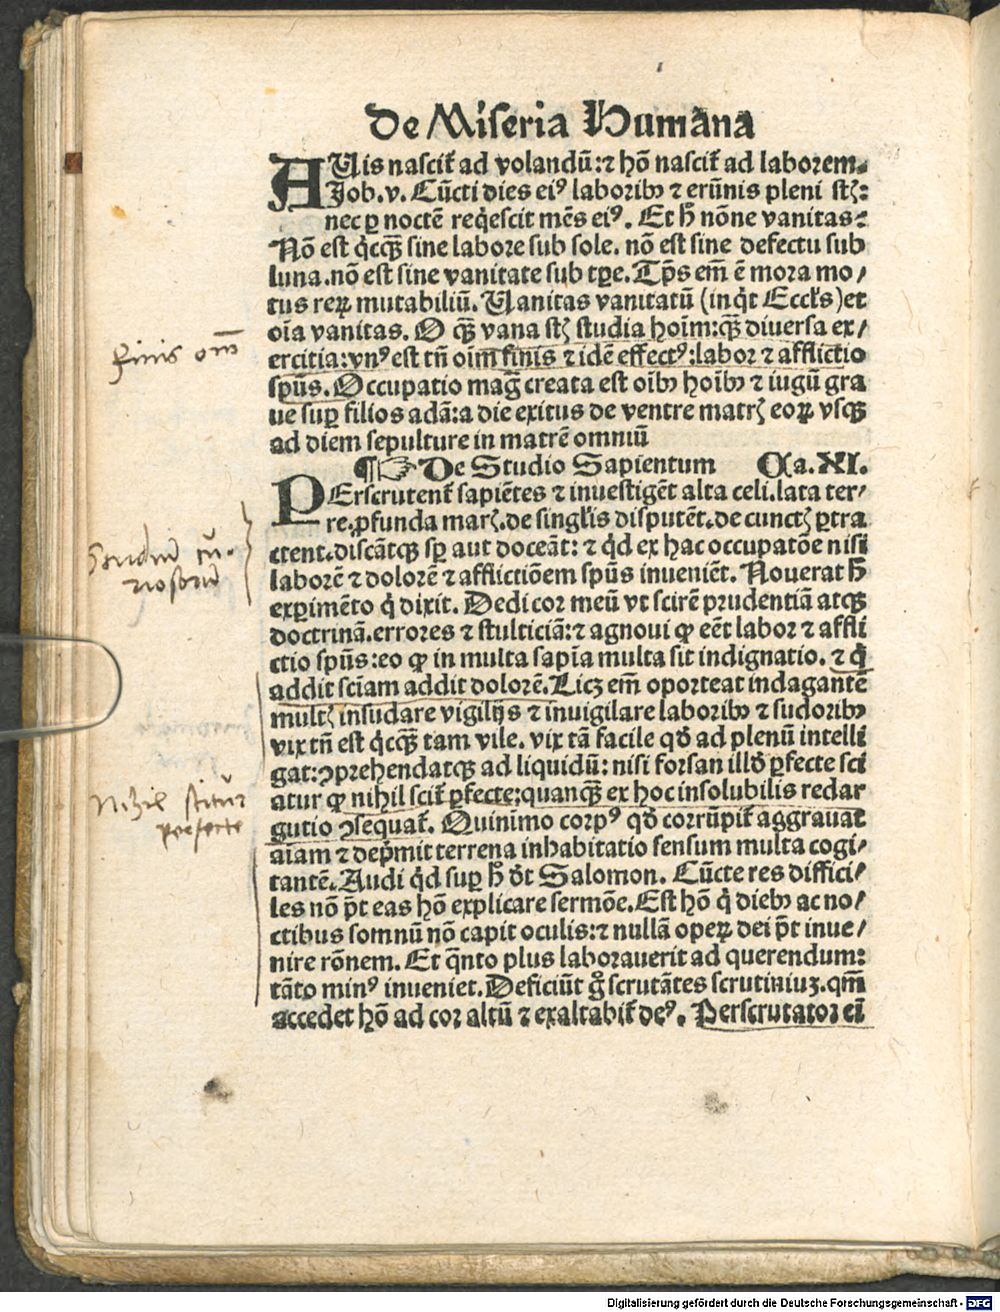 De Miseria Humana
AUis nascit᷑ ad volandū: ⁊ hō nascit᷑ ad laborem.
Job. v. Cūcti dies eiꝰ laboribꝫ ⁊ erūnis pleni stꝫ:
nec ꝑ noctē reqͥescit mēs eiꝰ. Et h̄ nōne vanitas:
Nō est qͥcqꝫ̄ sine labore sub sole. nō est sine defectu sub
luna. nō est sine vanitate sub tꝑe. Tp̄s em̄ ē mora mo/
tus rerꝝ mutabiliū. Uanitas vanitatū (inqͥt Eccl̄s) et
oīa vanitas. O qꝫ̄ vana stꝫ studia hoīm: qꝫ̄ diuersa ex/
ercitia: vnꝰ est tn̄ oīm finis ⁊ idē effectꝰ: labor ⁊ afflictio
sp̄us. Occupatio maḡ creata est oībꝫ hoībꝫ ⁊ iugū gra
ue suꝑ filios adā: a die exitus de ventre matrꝫ eoꝝ vsqꝫ
ad diem sepulture in matrē omniū
¶☞ De Studio Sapientum Ca. XI.
PErscrutent᷑ sapiētes ⁊ inuestigēt alta celi. lata ter/
re. ꝓfunda marꝫ. de singl̓is disputēt. de cunctꝫ ꝑtra
ctent. discātqꝫ sꝑ aut doceāt: ⁊ qͥd ex hac occupatōe nisi
laborē ⁊ dolorē ⁊ afflictiōem sp̄us inueniēt. Nouerat h̄
exꝑimēto qͥ dixit. Dedi cor meū vt scirē prudentiā atqꝫ
doctrinā. errores ⁊ stulticiā: ⁊ agnoui ꝙ eēt labor ⁊ affli
ctio sp̄us: eo ꝙ in multa sapīa multa sit indignatio. ⁊ qͥ
addit scīam addit dolorē. Licꝫ em̄ oporteat indagantē
multꝫ insudare vigilijs ⁊ inuigilare laboribꝫ ⁊ sudoribꝫ
vix tn̄ est qͥcqꝫ̄ tam vile. vix tā facile qd̓ ad plenū intelli
gat: ꝯprehendatqꝫ ad liquidū: nisi forsan illd̓ ꝑfecte sci
atur ꝙ nihil scit᷑ ꝑfecte: quanqꝫ̄ ex hoc insolubilis redar
gutio ꝯsequat᷑. Quinīmo corpꝰ qd̓ corrūpit᷑ aggrauat
aīam ⁊ dep̄mit terrena inhabitatio sensum multa cogi/
tantē. Audi qͥd suꝑ h̄ dt̓ Salomon. Cūcte res diffici/
les nō pt̄ eas hō explicare sermōe. Est hō qͥ diebꝫ ac no/
ctibus somnū nō capit oculis: ⁊ nullā operꝝ dei pt̄ inue/
nire rōnem. Et qn̄to plus laborauerit ad querendum:
tāto minꝰ inueniet. Deficiūt gͦ scrutātes scrutiniuꝫ. qm̄
accedet hō ad cor altū ⁊ exaltabit᷑ deꝰ. Perscrutator ei
finis om̄
Studiū cu-
riosorū
Nihil scitur
perfecte
Digitalisierung gefördert durch die Deutsche Forschungsgemeinschaft - DFG